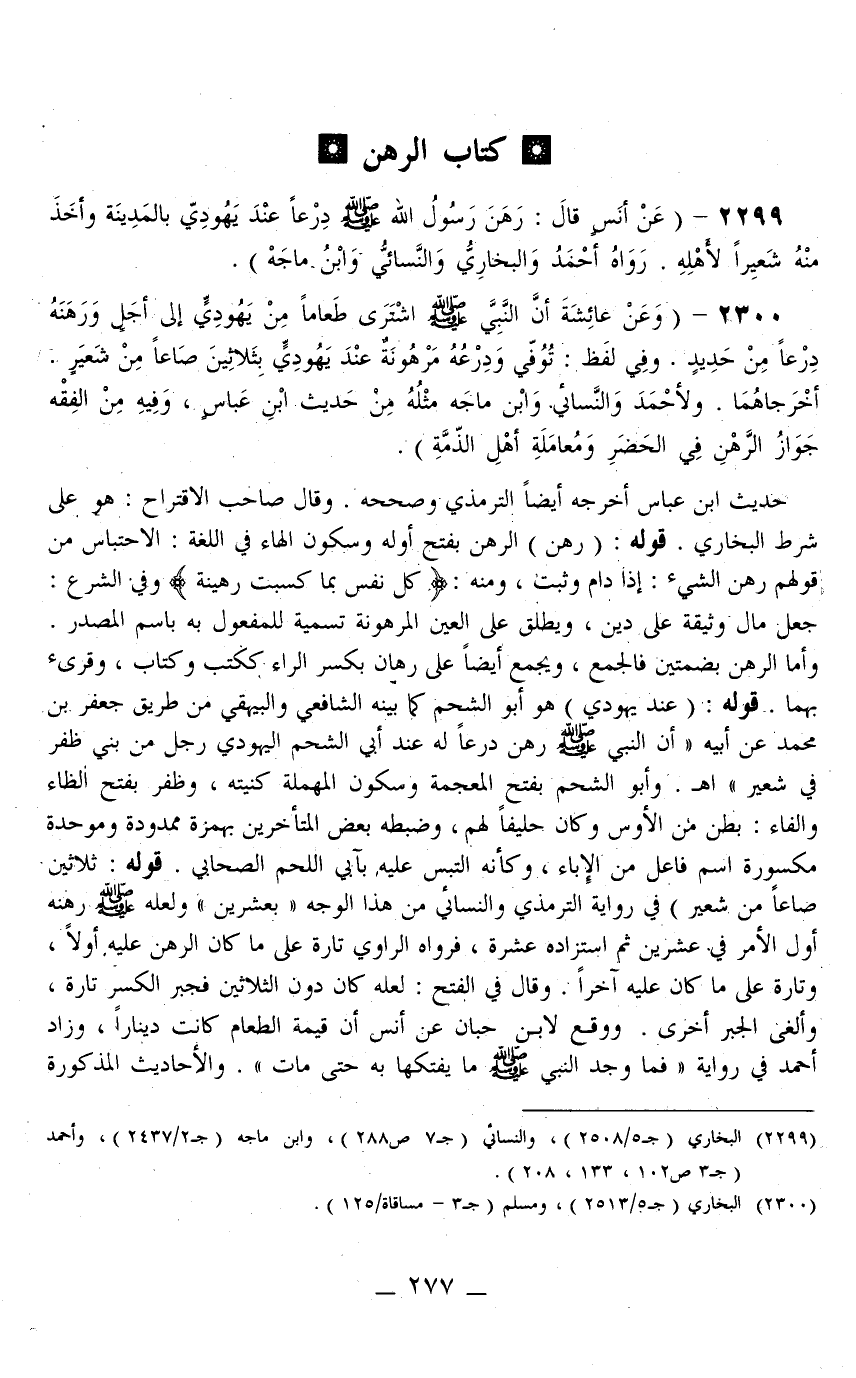 كتاب الرهن
٢٢٩٩ - ( عَنْ أنَسٍ قالَ : رَهَنَ رَسُولُ الله ﷺ دِرْعاً عنْدَ يَهُودِيّ بالمَدِينَة وأخَذَ
منْهُ شَعِيراً لأَهْلِهِ . رَوَاهُ أَحْمَدُ وَالبخارِيُّ وَالنَّسائيُّ وَابْنُ ماجَهْ ) .
٢٣٠٠ - ( وَعَنْ عائِشَةَ أنَّ النَّبِيَّ ﷺ اشْتَرَى طَعاماً مِنْ يَهُودِيٍّ إلى أجَلٍ وَرَهَنَهُ
دِرْعاً مِنْ حَدِيدٍ . وفِي لفَظ : تُوُفّي وَدِرْعُهُ مَرْهُونَةٌ عنْدَ يَهُودِيٍّ بِثَلاثِينَ صَاعاً مِنْ شَعَيرٍ .
أخْرَجاهُمَا . ولأحْمَدَ وَالنَّسائي وَابْن ماجَه مثْلُهُ مِنْ حَديث ابْنِ عَباسٍ ، وَفِيهِ مِنْ الفِقْه
جَوَازُ الرَّهْنِ فِي الحَضَرِ وَمُعامَلَةِ أهْلِ الذّمَّةِ ) .
حديث ابن عباس أخرجه أيضاً الترمذي وصححه . وقال صاحب الاقتراح : هو على
شرط البخاري . قوله : ( رهن ) الرهن بفتح أوله وسكون الهاء في اللغة : الاحتباس من
قولهم رهن الشيء : إذا دام وثبت ، ومنه : ﴿ كل نفس بما كسبت رهينة ﴾ وفي الشرع :
جعل مال وثيقة على دين ، ويطلق على العين المرهونة تسمية للمفعول به باسم المصدر .
وأما الرهن بضمتين فالجمع ، ويجمع أيضاً على رهان بكسر الراء ككتب وكتاب ، وقرىء
بهما . قوله : ( عند يهودي ) هو أبو الشحم كما بينه الشافعي والبيهقي من طريق جعفر بن
محمد عن أبيه « أن النبي ﷺ رهن درعاً له عند أبي الشحم اليهودي رجل من بني ظفر
في شعير » اهـ . وأبو الشحم بفتح المعجمة وسكون المهملة كنيته ، وظفر بفتح الظاء
والفاء : بطن من الأوس وكان حليفاً لهم ، وضبطه بعض المتأخرين بهمزة ممدودة وموحدة
مكسورة اسم فاعل من الإباء ، وكأنه التبس عليه بآبي اللحم الصحابي . قوله : ثلاثين
صاعاً من شعير ) في رواية الترمذي والنسائي من هذا الوجه « بعشرين » ولعله ﷺ رهنه
أول الأمر في عشرين ثم استزاده عشرة ، فرواه الراوي تارة على ما كان الرهن عليه أولاً ،
وتارة على ما كان عليه آخراً . وقال في الفتح : لعله كان دون الثلاثين فجبر الكسر تارة ،
وألغى الجبر أخرى . ووقع لابن حبان عن أنس أن قيمة الطعام كانت ديناراً ، وزاد
أحمد في رواية « فما وجد النبي ﷺ ما يفتكها به حتى مات » . والأحاديث المذكورة
(٢٢٩٩) البخاري ( جـ٥/٢٥٠٨ ) ، والنسائي ( جـ٧ ص٢٨٨ ) ، وابن ماجه ( جـ٢/٢٤٣٧ ) ، وأحمد
( جـ٣ ص١٠٢ ، ١٣٣ ، ٢٠٨ ) .
(٢٣٠٠) البخاري ( جـ٥/٢٥١٣ ) ، ومسلم ( جـ٣ - مساقاة/١٢٥ ) .
— ٢٧٧ —